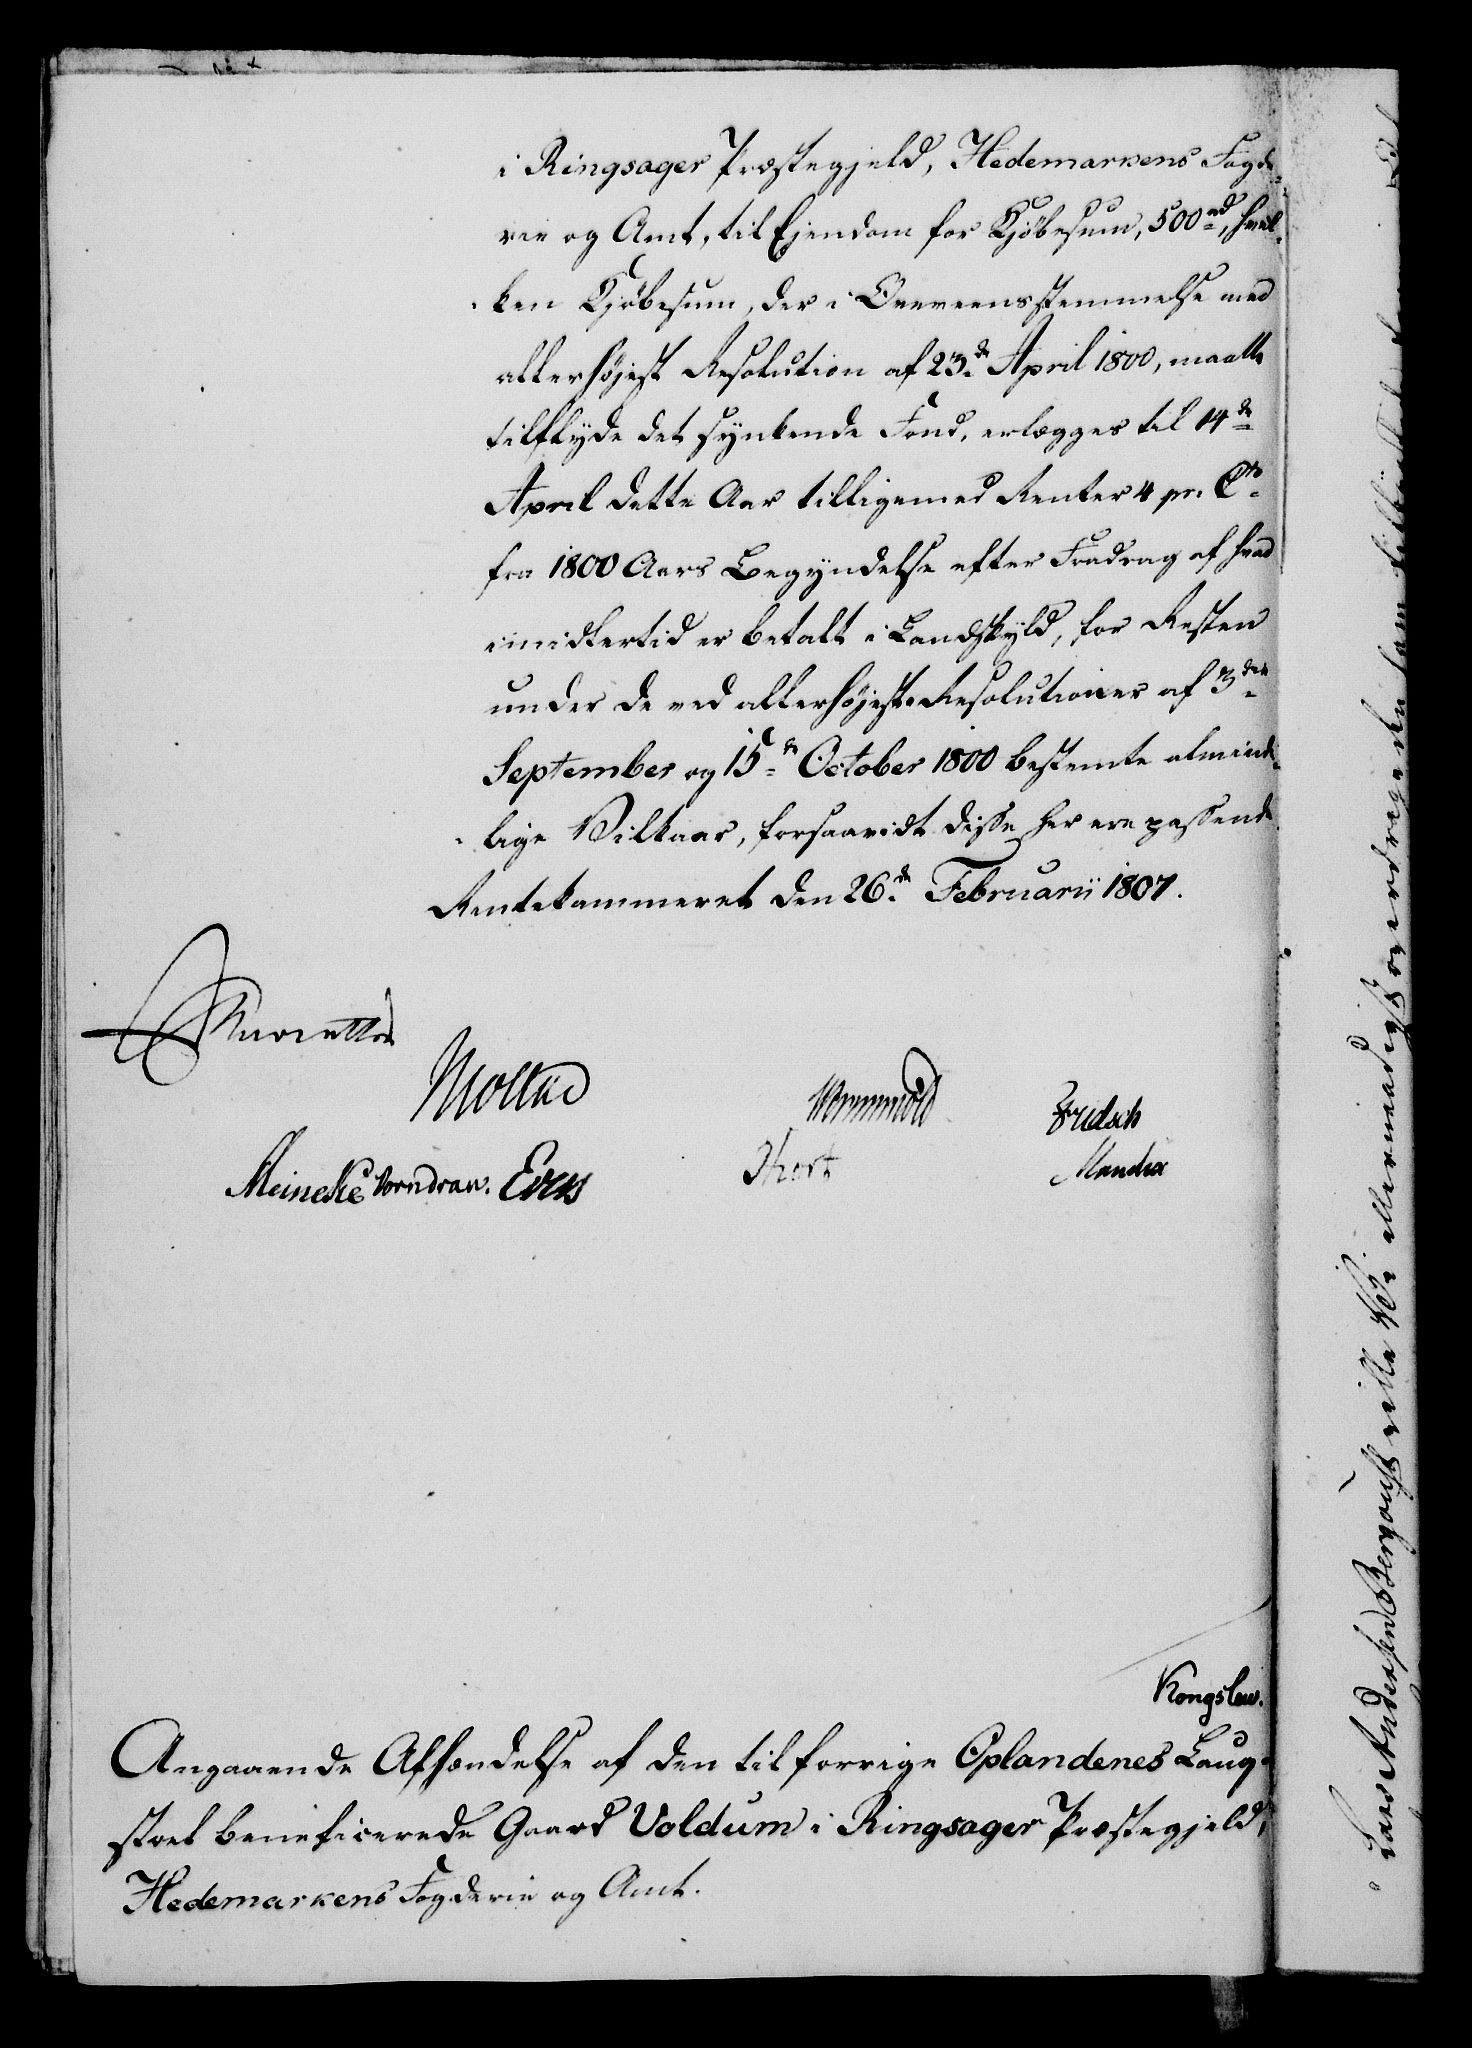 i Ringsager Præstegjeld, Hedemarkens Fogde-
rie og Amt, til Ejendom for Kjöbesum, 500 rd, hvil-
ken Kjöbesum, der i Overeensstemmelse med
allerhøjest Resolution af 23de April 1800, maatte
tilflyde det synkende Fond, erlægges til 14de
April dette Aar tilligemed Renter 4 pr. Cto
fra 1800 Aars Begyndelse efter Fradrag af hvad
imidlertid er betalt i Landskyld, for Resten
under de ved allerhøjeste Resolutioner af 3die
September og 15de October 1800 bestemte almind-
lige Vilkaar, forsaavidt disse her ere passende
Rentekammeret den 26de Februarii 1807.
Reventlow
Moltke
Wormskiold
Fridsch
Meincke Vorndran. Evers
Thort
Mandix
Kongslew.
Angaaende Afhændelse af den til forrige Oplandenes Laug-
stoel beneficerede Gaard Voldum i Ringsager Præstegjeld,
Hedemarkens Fogderie og Amt.
Lars Andersen Bergqust ville Vi allernaadigst